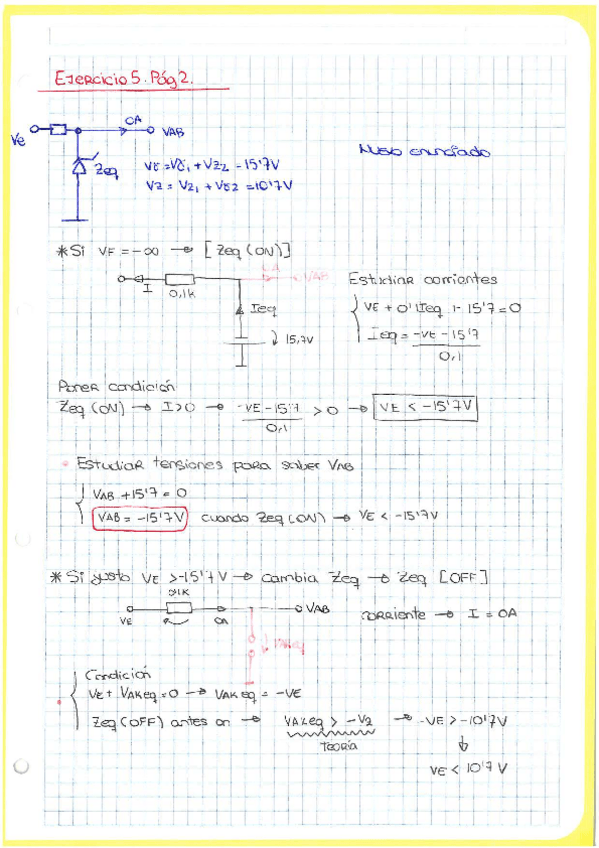 Ejercicio 5. Pág 2.
Ve
0A
VAB
Zeq
Vɣ = Vɣ1 + VZ2 = 15'7V
VZ = VZ1 + Vɣ2 = 10'7V
Nuevo enunciado
* Si VE = -∞ → [Zeq (ON)]
0A
VAB
I
0,1K
Ieq
15,7V
Estudiar corrientes
VE + 0'1Ieq + 15'7 = 0
Ieq = -VE - 15'7
0,1
Poner condición
Zeq (ON) → I>0 → -VE-15'7 > 0 → VE < -15'7V
0,1
• Estudiar tensiones para saber VAB
VAB + 15'7 = 0
VAB = -15'7V cuando Zeq (ON) → VE < -15'7V
* Si justo VE > -15'7V → cambia Zeq → Zeq [OFF]
VE
0A
VAB
corriente → I = 0A
VAKeq
Condición
VE + VAKeq = 0 → VAKeq = -VE
Zeq (OFF) antes on → VAKeq > -VZ → -VE > -10'7V
Teoría
VE < 10'7V